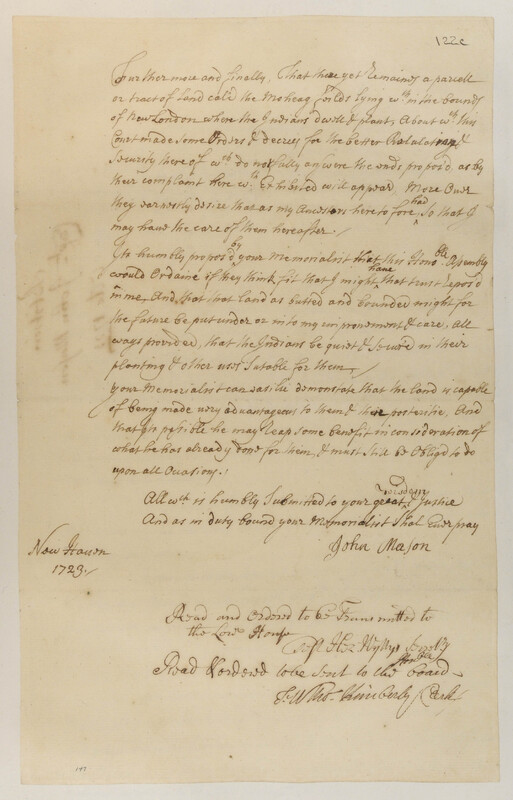 122c
Furthermore and finally, That there yet Remaines a parcell
or tract of Land cald the Moheag feilds lying wth in the bounds
of New London where the Indians dwell & plant. About wch this
Court made some Orders & decrees for the better Regulating &
Security there of wch do not fully answere the ends propos'd, as by
their complaint here wth Exhibited will appear, More Over
they earnestly desire that as my Ancestors here to fore had, So that I
may have the care of them hereafter.
Its humbly propos'd by your Memorialist that this Honoble Assembly
would Ordaine if they think fit that I might have that trust repos'd
in me. And that that land as butted and bounded might for
the future be put under or in to my improvement & care. All
ways provided, that the Indians be quiet & secure'd in their
planting & other uses Sutable for them.
your Memorialist can easilie demonstrate that the land is capable
of being made very advantageous to them & their posteritie. And
that if possible he may Reap some benefit in consideration of
what he has already done for them, & must still be Oblig'd to do
upon all Ocasions.
All wch is humbly Submitted to your great wisdom & Justice
And as in duty bound your Memorialist Shal Ever pray
John Mason
New Haven
1723.
Read and Ordered to be Transmitted to
the Lowr House
Test Hez Wyllys Secrety
Read & ordered to be sent to the Honble board
Tho: Kimberly Clerk